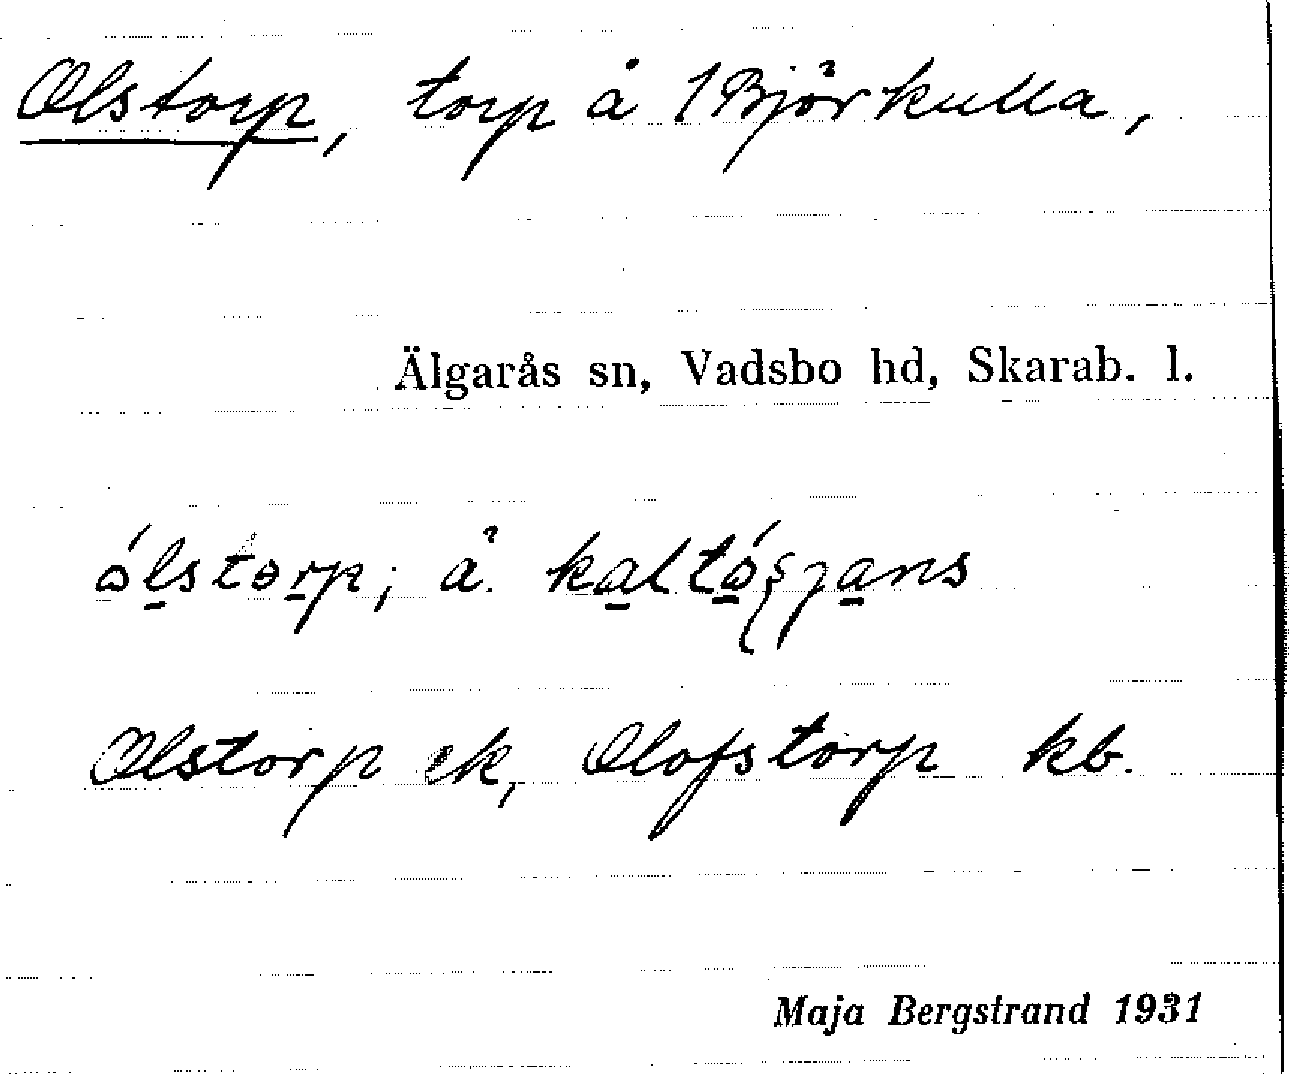 Olstorp, torp å 1 Björkulla,
Älgarås sn, Vadsbo hd, Skarab. l.
ólstorp; å.
Olstorp ek, Olofstorp kb.
Maja Bergstrand 1931